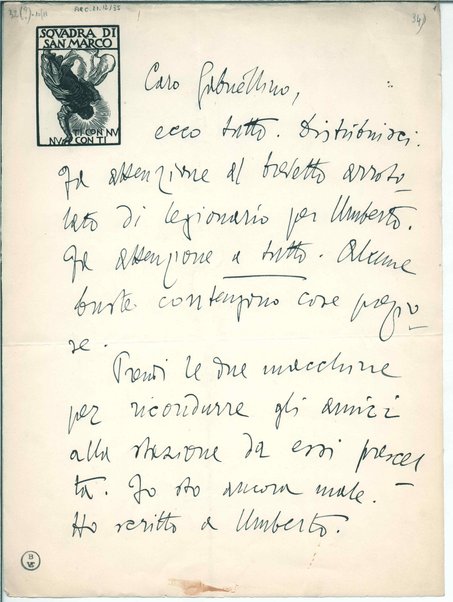 ARC. 21. 10/35
34)
SQVADRA DI
SAN MARCO
TI CON NV
NV CON TI
Caro Gabriellino,
ecco tutto. Distribuisci.
Fa attenzione al brevetto arroto-
lato di legionario per Umberto.
Fa attenzione a tutto. Alcune
buste contengono cose prezio-
se.
Prendi le due macchine
per ricondurre gli amici
alla stazione da essi prescel-
ta. Io sto ancora male.
Ho scritto a Umberto.